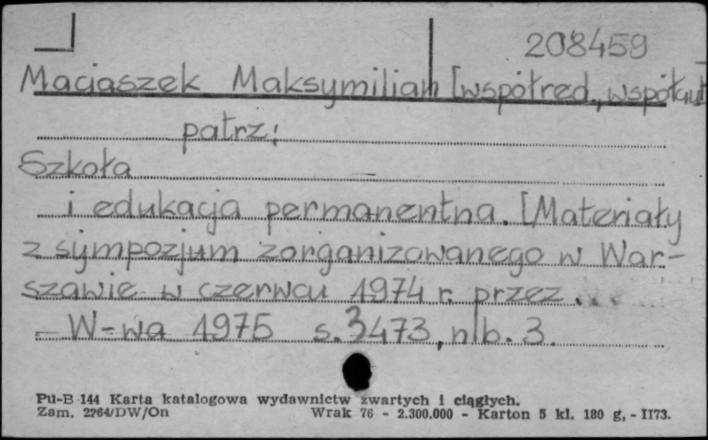 208459
Maciaszek Maksymilian [współred., współaut
patrz:
Szkoła
i edukacja permanentna. [Materiały
z sympozjum zorganizowanego w War-
szawie w czerwcu 1974 r. przez...
- W-wa 1975 s. 3473, nlb. 3.
Pu-B 144 Karta katalogowa wydawnictw zwartych i ciągłych.
Zam. 2264/DW/On Wrak 76 - 2.300.000 - Karton 5 kl. 180 g, - II73.